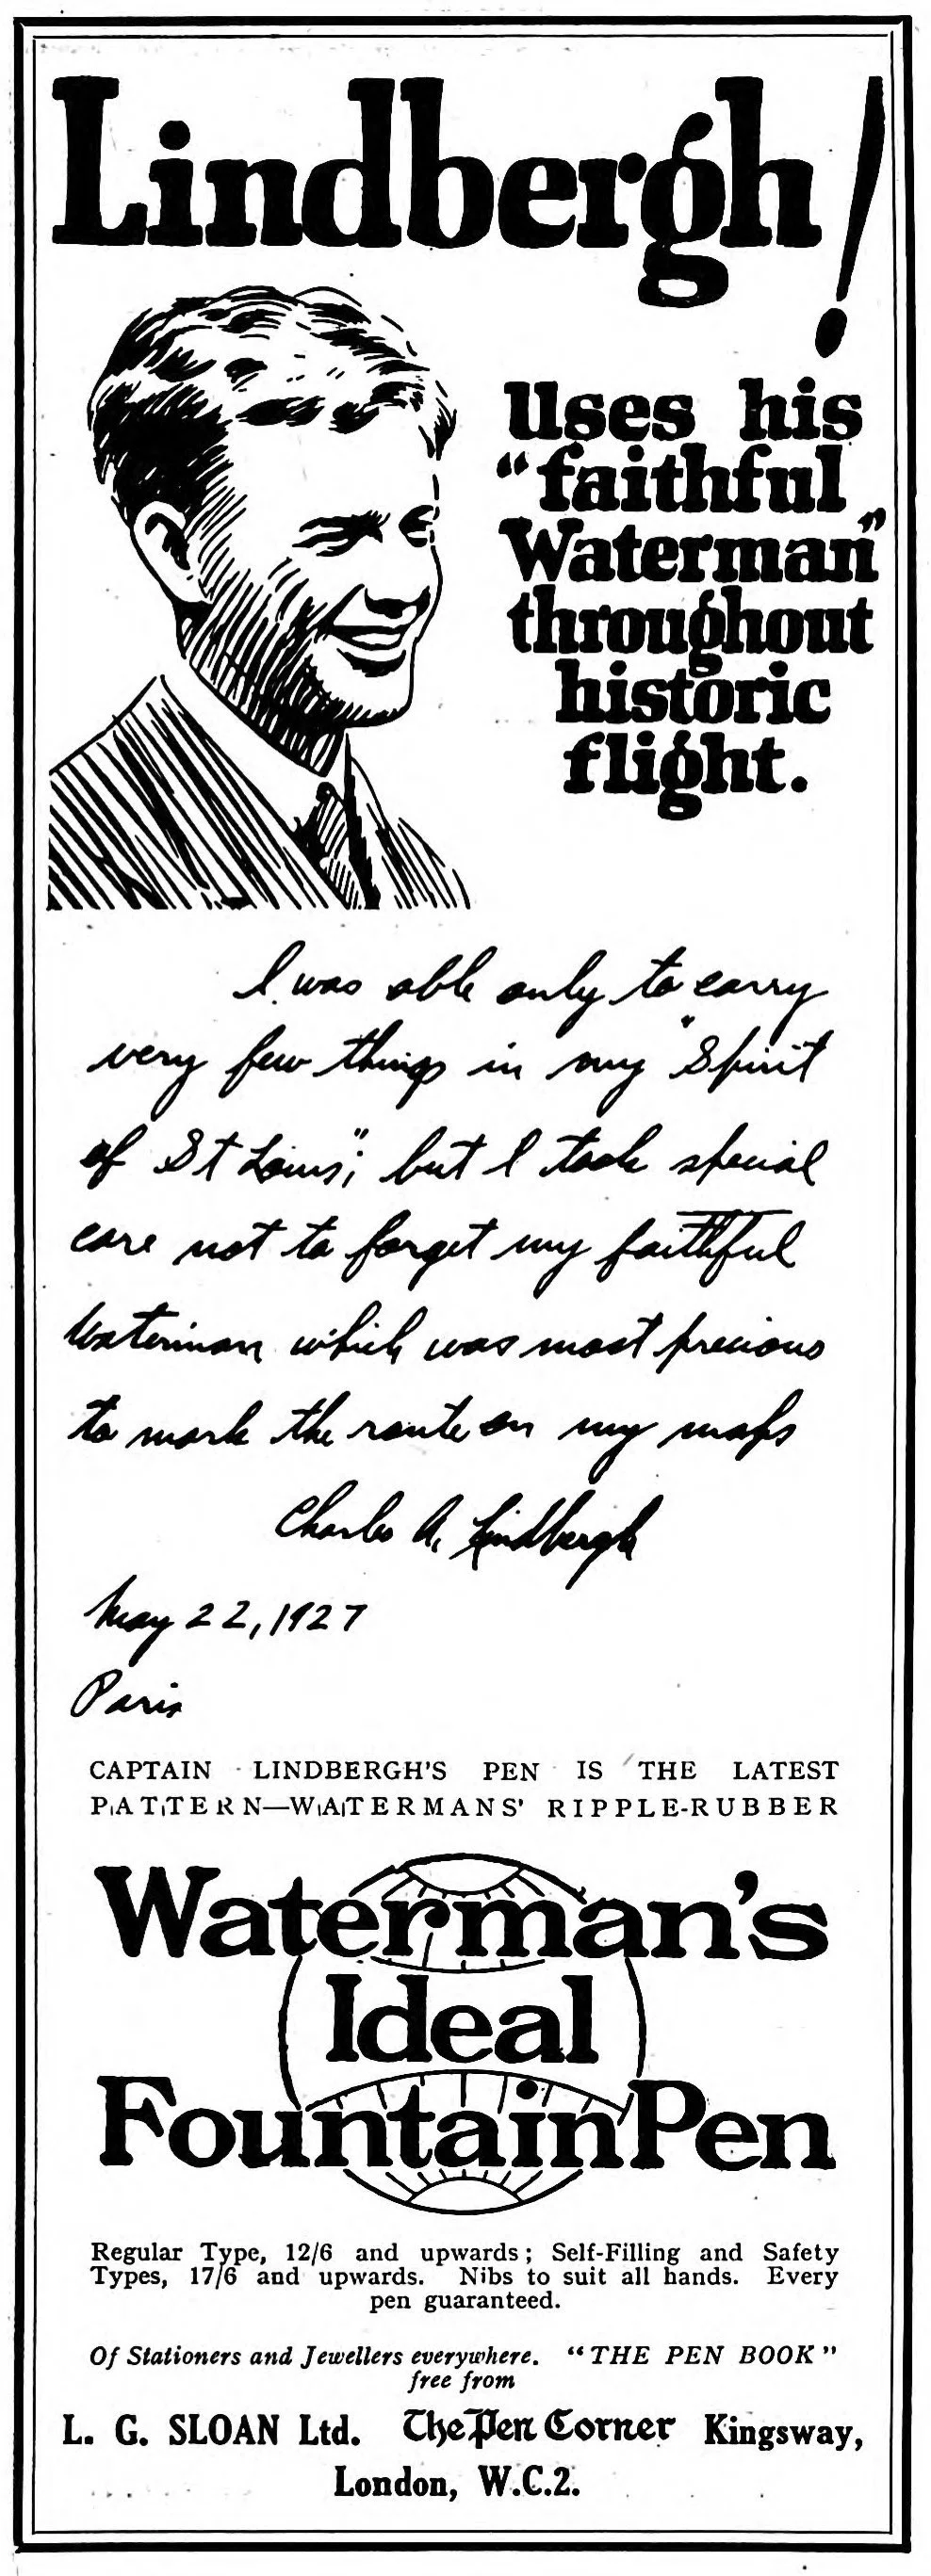 Lindbergh!
Uses his
"faithful
Waterman"
throughout
historic
flight.
I was able only to carry
very few things in my "Spirit
of St Louis"; but I took special
care not to forget my faithful
Waterman which was most precious
to mark the route on my maps
Charles A. Lindbergh
May 22, 1927
Paris
CAPTAIN LINDBERGH'S PEN IS THE LATEST
PATTERN—WATERMANS' RIPPLE-RUBBER
Waterman's
Ideal
Fountain Pen
Regular Type, 12/6 and upwards; Self-Filling and Safety
Types, 17/6 and upwards. Nibs to suit all hands. Every
pen guaranteed.
Of Stationers and Jewellers everywhere. "THE PEN BOOK"
free from
L. G. SLOAN Ltd. The Pen Corner Kingsway,
London, W.C.2.